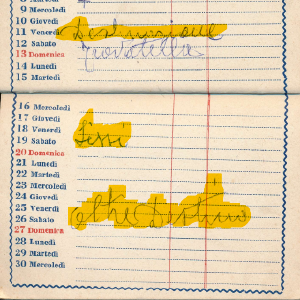 9 Mercoledì
10 Giovedì
11 Venerdì
12 Sabato
13 Domenica
14 Lunedì
15 Martedì
16 Mercoledì
17 Giovedì
18 Venerdì
19 Sabato Sissi
20 Domenica
21 Lunedì
22 Martedì
23 Mercoledì
24 Giovedì
25 Venerdì oltre Destino
26 Sabato
27 Domenica
28 Lunedì
29 Martedì
30 Mercoledì